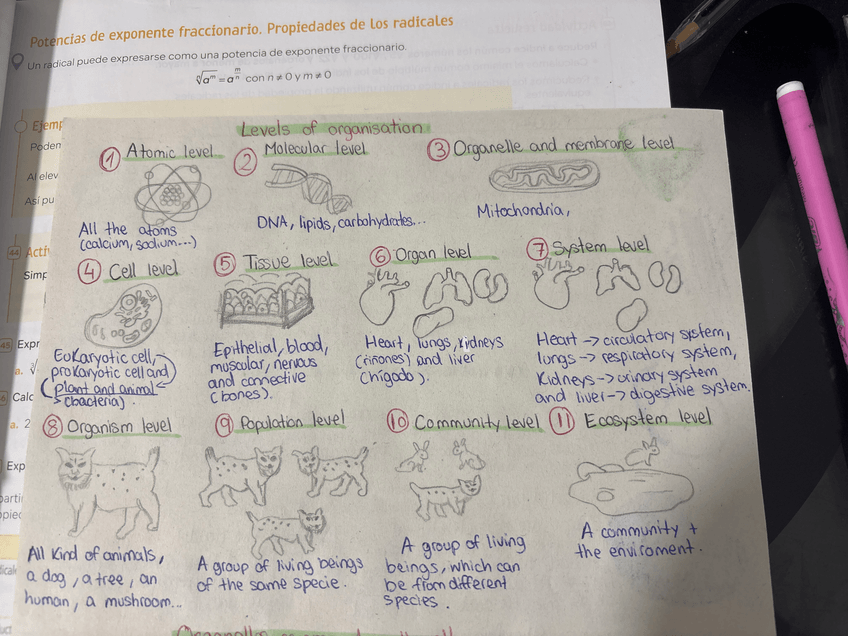 Potencias de exponente fraccionario. Propiedades de los radicales
Un radical puede expresarse como una potencia de exponente fraccionario.
ⁿ√aᵐ = a^(m/n) con n ≠ 0 y m ≠ 0
Ejemp
Poden
Al elev
Así pu
44 Activ
Simp
45 Expr
a.
Calc
a. 2
Exp
parti
opied
Levels of organisation
1 Atomic level
All the atoms
(calcium, sodium...)
2 Molecular level
DNA, lipids, carbohydrates...
3 Organelle and membrane level
Mitochondria,
4 Cell level
Eukaryotic cell,
prokaryotic cell and
(plant and animal
(bacteria).
5 Tissue level
Epithelial, blood,
muscular, nervous
and connective
(bones).
6 Organ level
Heart, lungs, kidneys
(riñones) and liver
(hígado).
7 System level
Heart -> circulatory system,
lungs -> respiratory system,
Kidneys -> urinary system
and liver -> digestive system.
8 Organism level
All kind of animals,
a dog, a tree, an
human, a mushroom...
9 Population level
A group of living beings
of the same specie.
10 Community level
A group of living
beings, which can
be from different
species.
11 Ecosystem level
A community +
the enviroment.